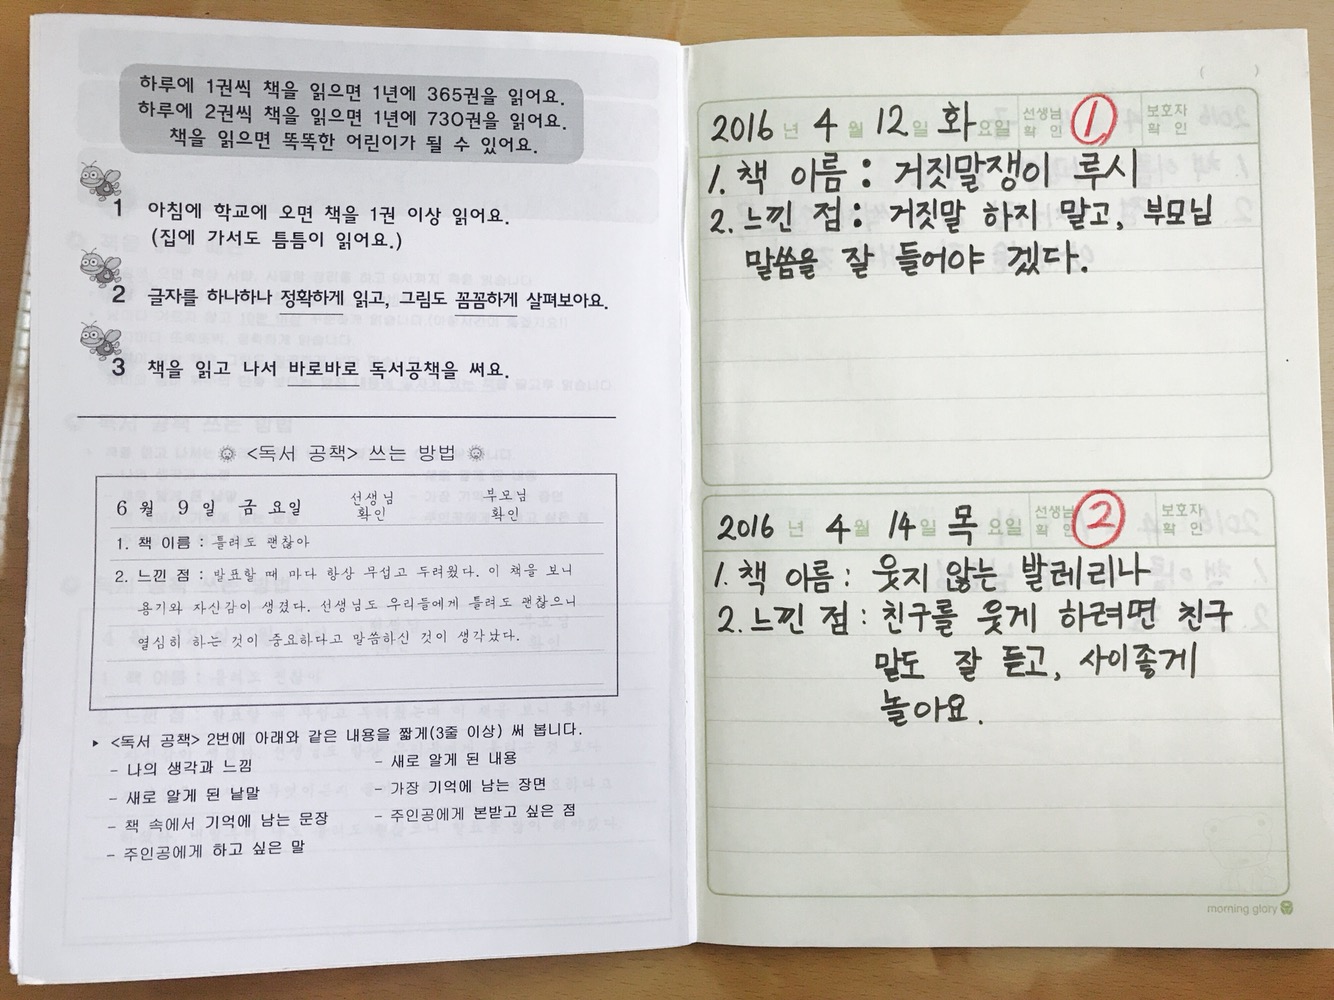 하루에 1권씩 책을 읽으면 1년에 365권을 읽어요.
하루에 2권씩 책을 읽으면 1년에 730권을 읽어요.
책을 읽으면 똑똑한 어린이가 될 수 있어요.
1 아침에 학교에 오면 책을 1권 이상 읽어요.
(집에 가서도 틈틈이 읽어요.)
2 글자를 하나하나 정확하게 읽고, 그림도 꼼꼼하게 살펴보아요.
3 책을 읽고 나서 바로바로 독서공책을 써요.
<독서 공책> 쓰는 방법
6 월 9 일 금 요일 선생님 확인 부모님 확인
1. 책 이름 : 틀려도 괜찮아
2. 느낀 점 : 발표할 때 마다 항상 무섭고 두려웠다. 이 책을 보니
용기와 자신감이 생겼다. 선생님도 우리들에게 틀려도 괜찮으니
열심히 하는 것이 중요하다고 말씀하신 것이 생각났다.
<독서 공책> 2번에 아래와 같은 내용을 짧게(3줄 이상) 써 봅니다.
- 나의 생각과 느낌 - 새로 알게 된 내용
- 새로 알게 된 낱말 - 가장 기억에 남는 장면
- 책 속에서 기억에 남는 문장 - 주인공에게 본받고 싶은 점
- 주인공에게 하고 싶은 말
( )
2016 년 4 월 12 일 화 요일 선생님 확인 1 보호자 확인
1. 책 이름 : 거짓말쟁이 루시
2. 느낀 점 : 거짓말 하지 말고, 부모님
말씀을 잘 들어야 겠다.
2016 년 4 월 14 일 목 요일 선생님 확인 2 보호자 확인
1. 책 이름 : 웃지 않는 발레리나
2. 느낀 점 : 친구를 웃게 하려면 친구
말도 잘 듣고, 사이좋게
놀아요.
morning glory